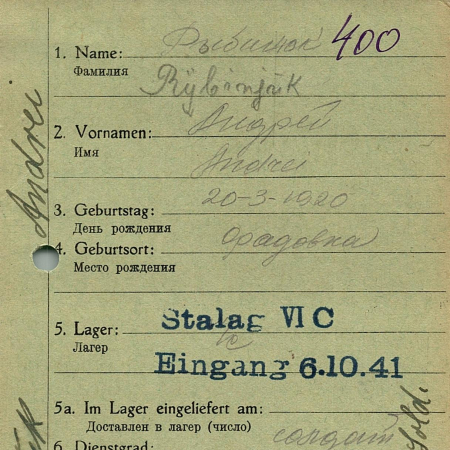 1. Name: Рыбинюк 400
Фамилия
Rybinjuk
2. Vornamen: Андрей
Имя
Andrei
3. Geburtstag: 20-3-1920
День рождения
4. Geburtsort:
Место рождения
5. Lager: Stalag VI C
Лагер
Eingang 6.10.41
5a. Im Lager eingeliefert am:
Доставлен в лагер (число)
6. Dienstgrad: солдат
Andrei
Sold.